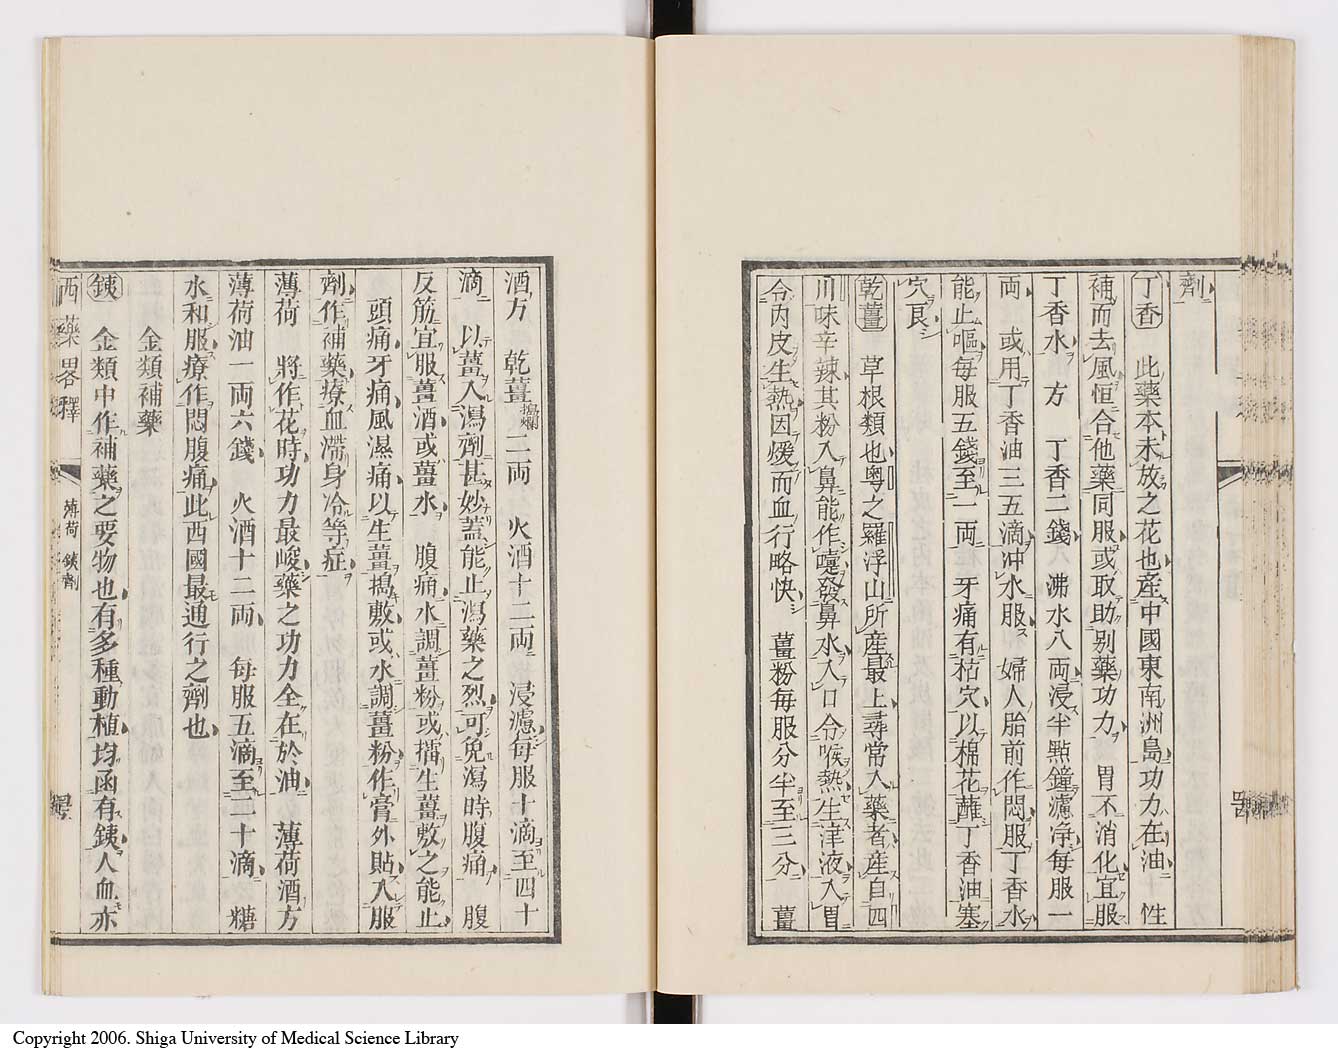 劑
丁香　此藥本未放之花也產中國東南洲島功力在油　性
補而去風恒合他藥同服或取助别藥功力　胃不消化宜服
丁香水　方　丁香二錢　沸水八両浸半點鐘濾淨每服一
両　或用丁香油三五滴冲水服　婦人胎前作悶服丁香水
能止嘔每服五錢至一両　牙痛有枯穴以棉花蘸丁香油塞
穴良
乾薑　草根類也粤之羅浮山所產最上尋常入藥者產自四
川味辛辣其粉入鼻能作嚏發鼻水入口令喉熱生津液入胃
令內皮生熱因煖而血行略快　薑粉每服分半至三分　薑
酒方　乾薑搗爛二両　火酒十二両　浸濾每服十滴至四十
滴　以薑入瀉劑甚妙蓋能止瀉藥之烈可免瀉時腹痛　腹
反筋宜服薑酒或薑水　腹痛水調薑粉或擂生薑敷之能止
頭痛牙痛風濕痛以生薑搗敷或水調薑粉作膏外貼入服
劑作補藥療血滯身冷等症
薄荷　將作花時功力最峻藥之功力全在於油　薄荷酒方
薄荷油一両六錢　火酒十二両　每服五滴至二十滴　糖
水和服療作悶腹痛此西國最通行之劑也
金類補藥
銕　金類中作補藥之要物也有多種動植均函有銕人血亦
西藥畧釋
薄荷　銕劑